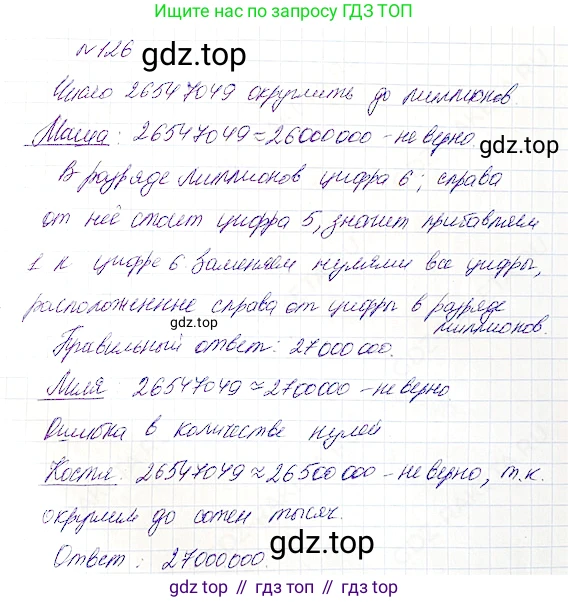 Ищите нас по запросу ГДЗ ТОП
№126
gdz.top
Число 26547049 округлить до миллионов.
Маша: 26547049≈26000000 - не верно.
gdz.top
В разряде миллионов цифра 6; справа
от неё стоит цифра 5, значит прибавляем
1 к цифре 6 Заменяем нулями все цифры,
расположенные справа от цифры в разряде
миллионов.
gdz.top
Правильный ответ: 27000000.
Миля: 26547049≈2700000 - не верно
Ошибка в количестве нулей
Костя: 26547049≈26500000 - не верно, т.к.
округлил до сотен тысяч.
Ответ: 27000000.
gdz.top
gdz.top // гдз.топ // gdz.top